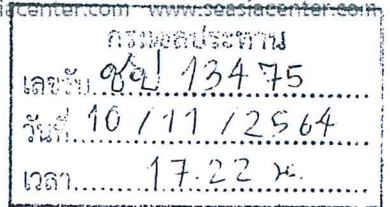 acenter.com www.seasiacenter.com
กรมชลประทาน
เลขรับ ชป 13475
วันที่ 10 / 11 / 2564
เวลา 17.22 น.